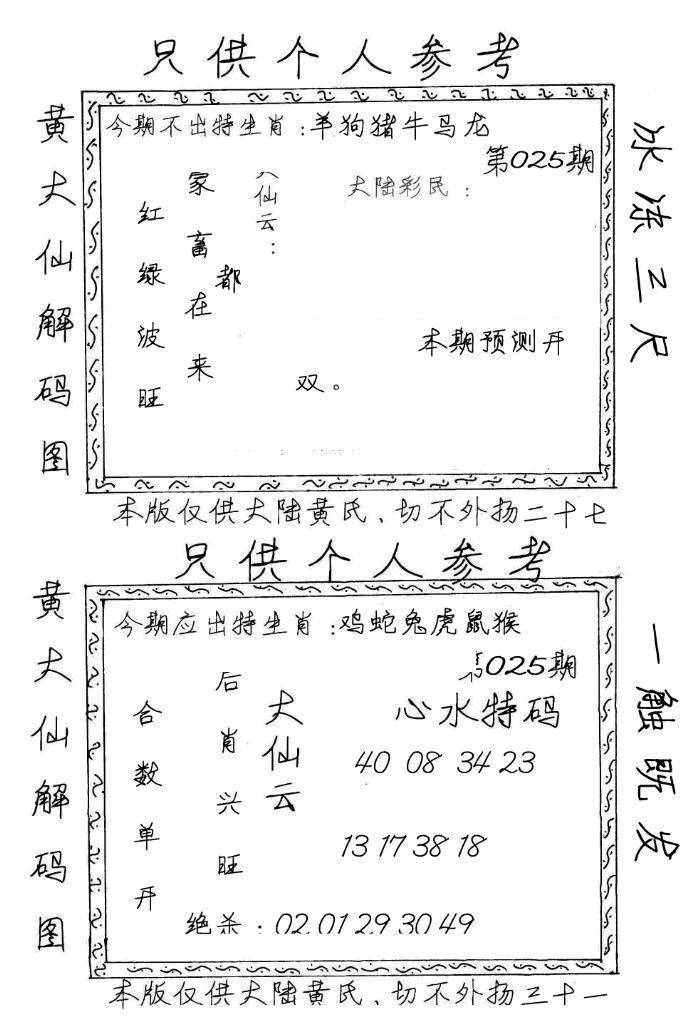 只供个人参考
黄大仙解码图
今期不出特生肖：羊狗猪牛马龙
第025期
大陆彩民：
仙云：
家畜都在来
红绿波旺
本期预测开
双。
冰冻三尺
本版仅供大陆黄氏、切不外扬二十七
只供个人参考
黄大仙解码图
今期应出特生肖：鸡蛇兔虎鼠猴
025期
心水特码
大仙云
后肖兴旺
合数单开
40 08 34 23
13 17 38 18
绝杀．02.01.29.30.49
一触既发
本版仅供大陆黄氏、切不外扬三十一